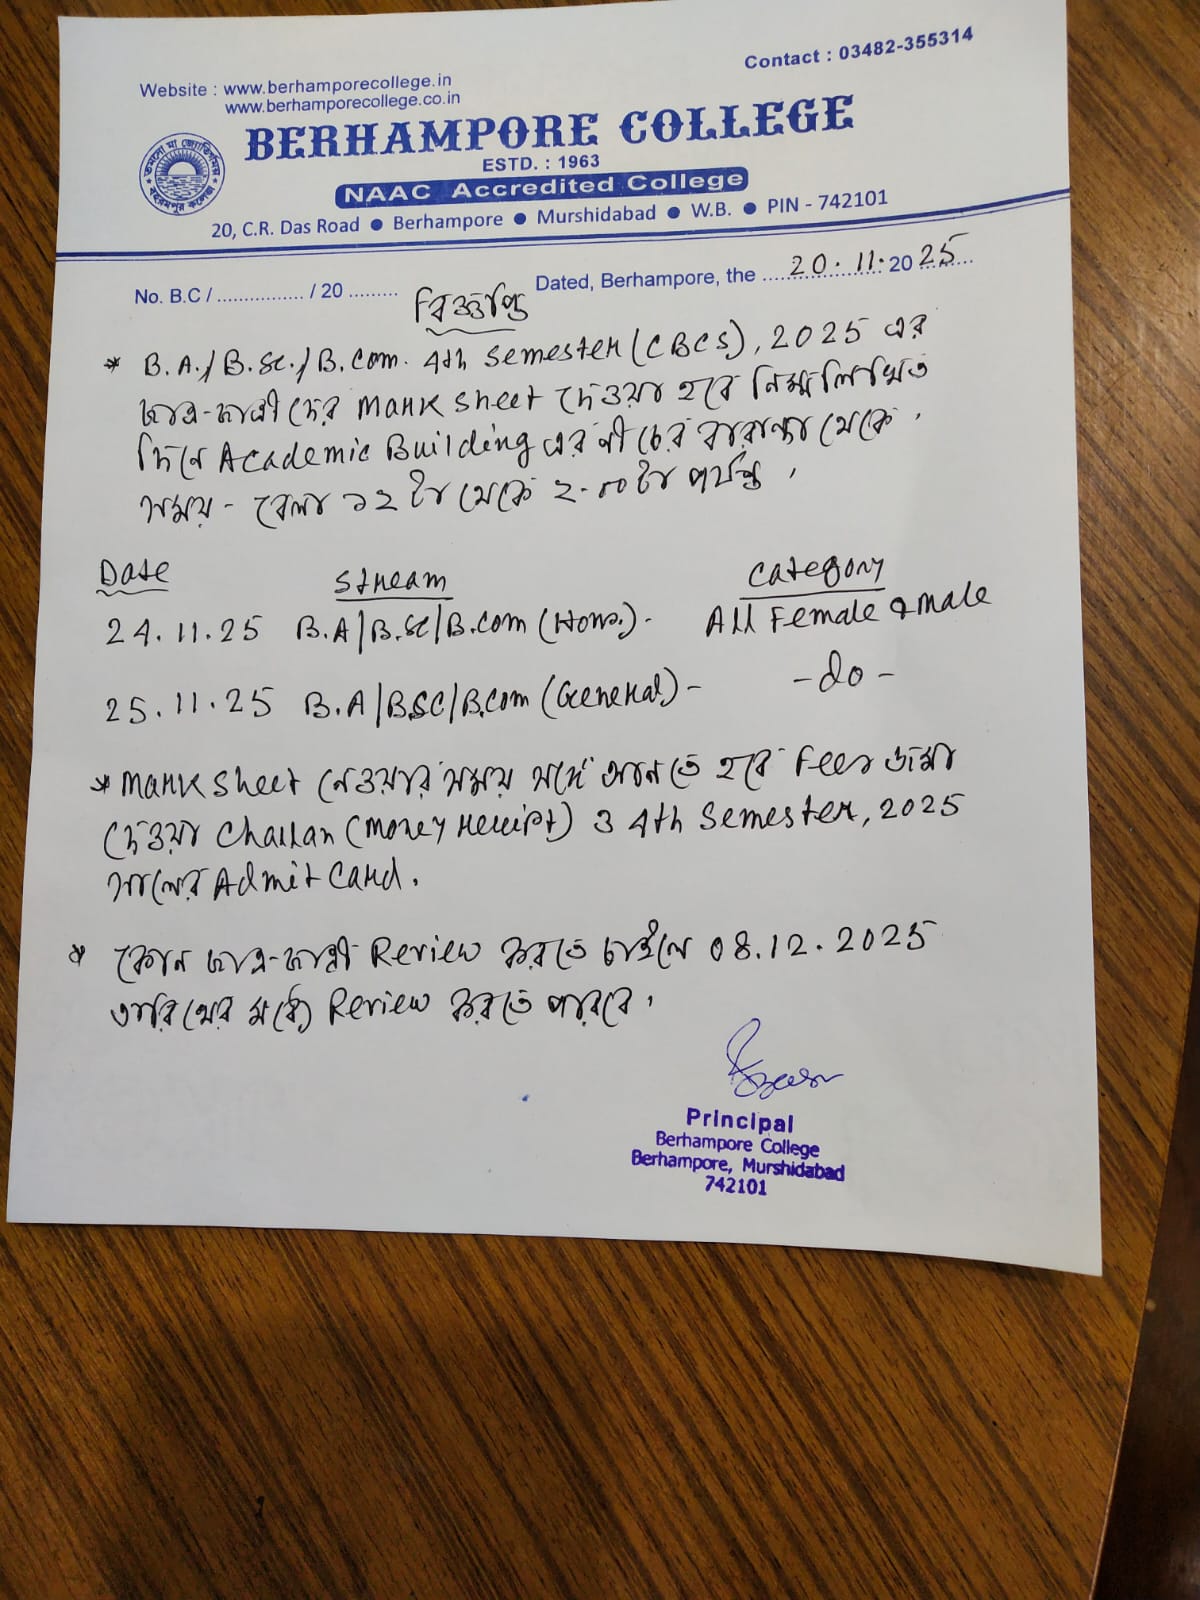 Website : www.berhamporecollege.in
www.berhamporecollege.co.in
Contact : 03482-355314
BERHAMPORE COLLEGE
ESTD. : 1963
NAAC Accredited College
20, C.R. Das Road ● Berhampore ● Murshidabad ● W.B. ● PIN - 742101
তমসো মা জ্যোতির্গময়
বহরমপুর কলেজ
No. B.C / ................ / 20 .........
Dated, Berhampore, the 20.11.2025
বিজ্ঞপ্তি
* B.A./B.Sc./B.Com. 4th Semester (CBCS), 2025 এর
ছাত্র-ছাত্রীদের Mark sheet দেওয়া হবে নিম্নলিখিত
দিনে Academic Building এর নীচের বারান্দা থেকে।
সময় - বেলা ১২ টা থেকে ২-৩০ টা পর্যন্ত।
Date Stream Category
24.11.25 B.A/B.Sc/B.Com (Hons.) - All Female & male
25.11.25 B.A/BSC/B.Com (General) - -do-
* Mark sheet নেওয়ার সময় সঙ্গে আনতে হবে Fees জমা
দেওয়া Challan (Money receipt) ও 4th Semester, 2025
সালের Admit Card.
* কোন ছাত্র-ছাত্রী Review করতে চাইলে 08.12.2025
তারিখের মধ্যে Review করতে পারবে।
Principal
Berhampore College
Berhampore, Murshidabad
742101